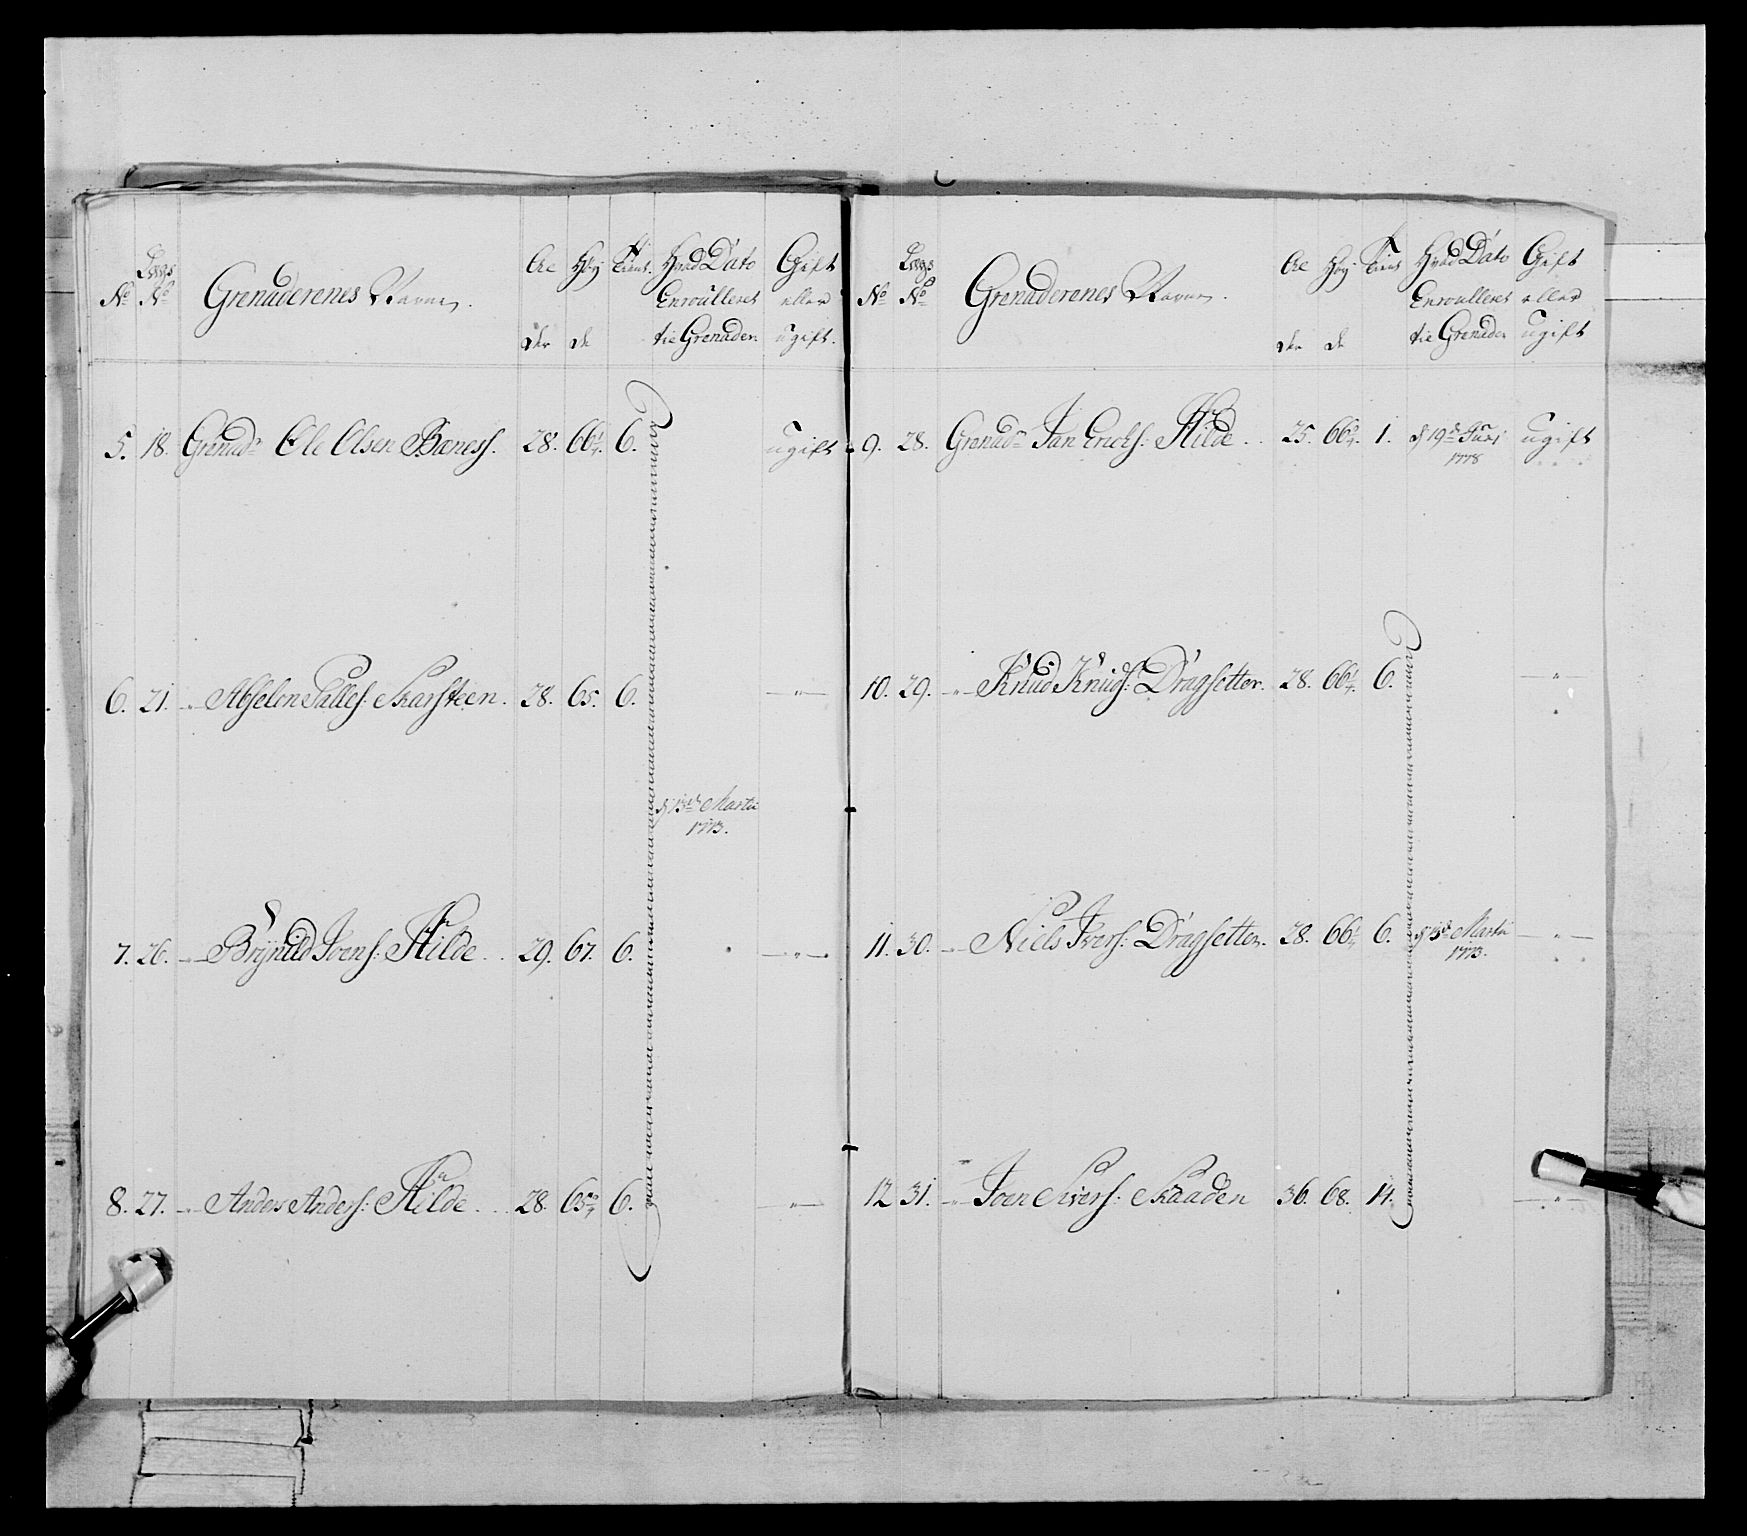 No Lægs No Grenaderenes Navne. Al der Høy de Tient. Hvad Dato Enroulleret til Grenader Gift eller ugift.
5. 18. Grenadr Ole Olsen Bærness. 28. 66 1/4. 6. ugift
6. 21. " Abselon Palles: Skarsteen. 28. 65. 6. "
d 13de Martii
1773.
7. 26. " Brÿnild Joens: Hilde. 29. 67. 6. "
8. 27. " Anders Anders: Hilde. 28. 65 3/4 6. "
No Lægs No Grenaderenes Navne. Al der Høy de Tient Hvad Dato Enroulleret til Grenader Gift eller ugift
9. 28. Grenadr Jan Erichs: Hilde. 25. 66 3/4. 1. d 19de Juni ugift
1778
10. 29. " Knud Knuds: Dragsetter. 28. 66 1/4. 6. "
11. 30. " Niels Ivers: Dragsetter. 28. 66 1/4 6. d 13de Martii "
1773.
12 31. " Joen Sivers: Skaaden 36. 68. 14. "